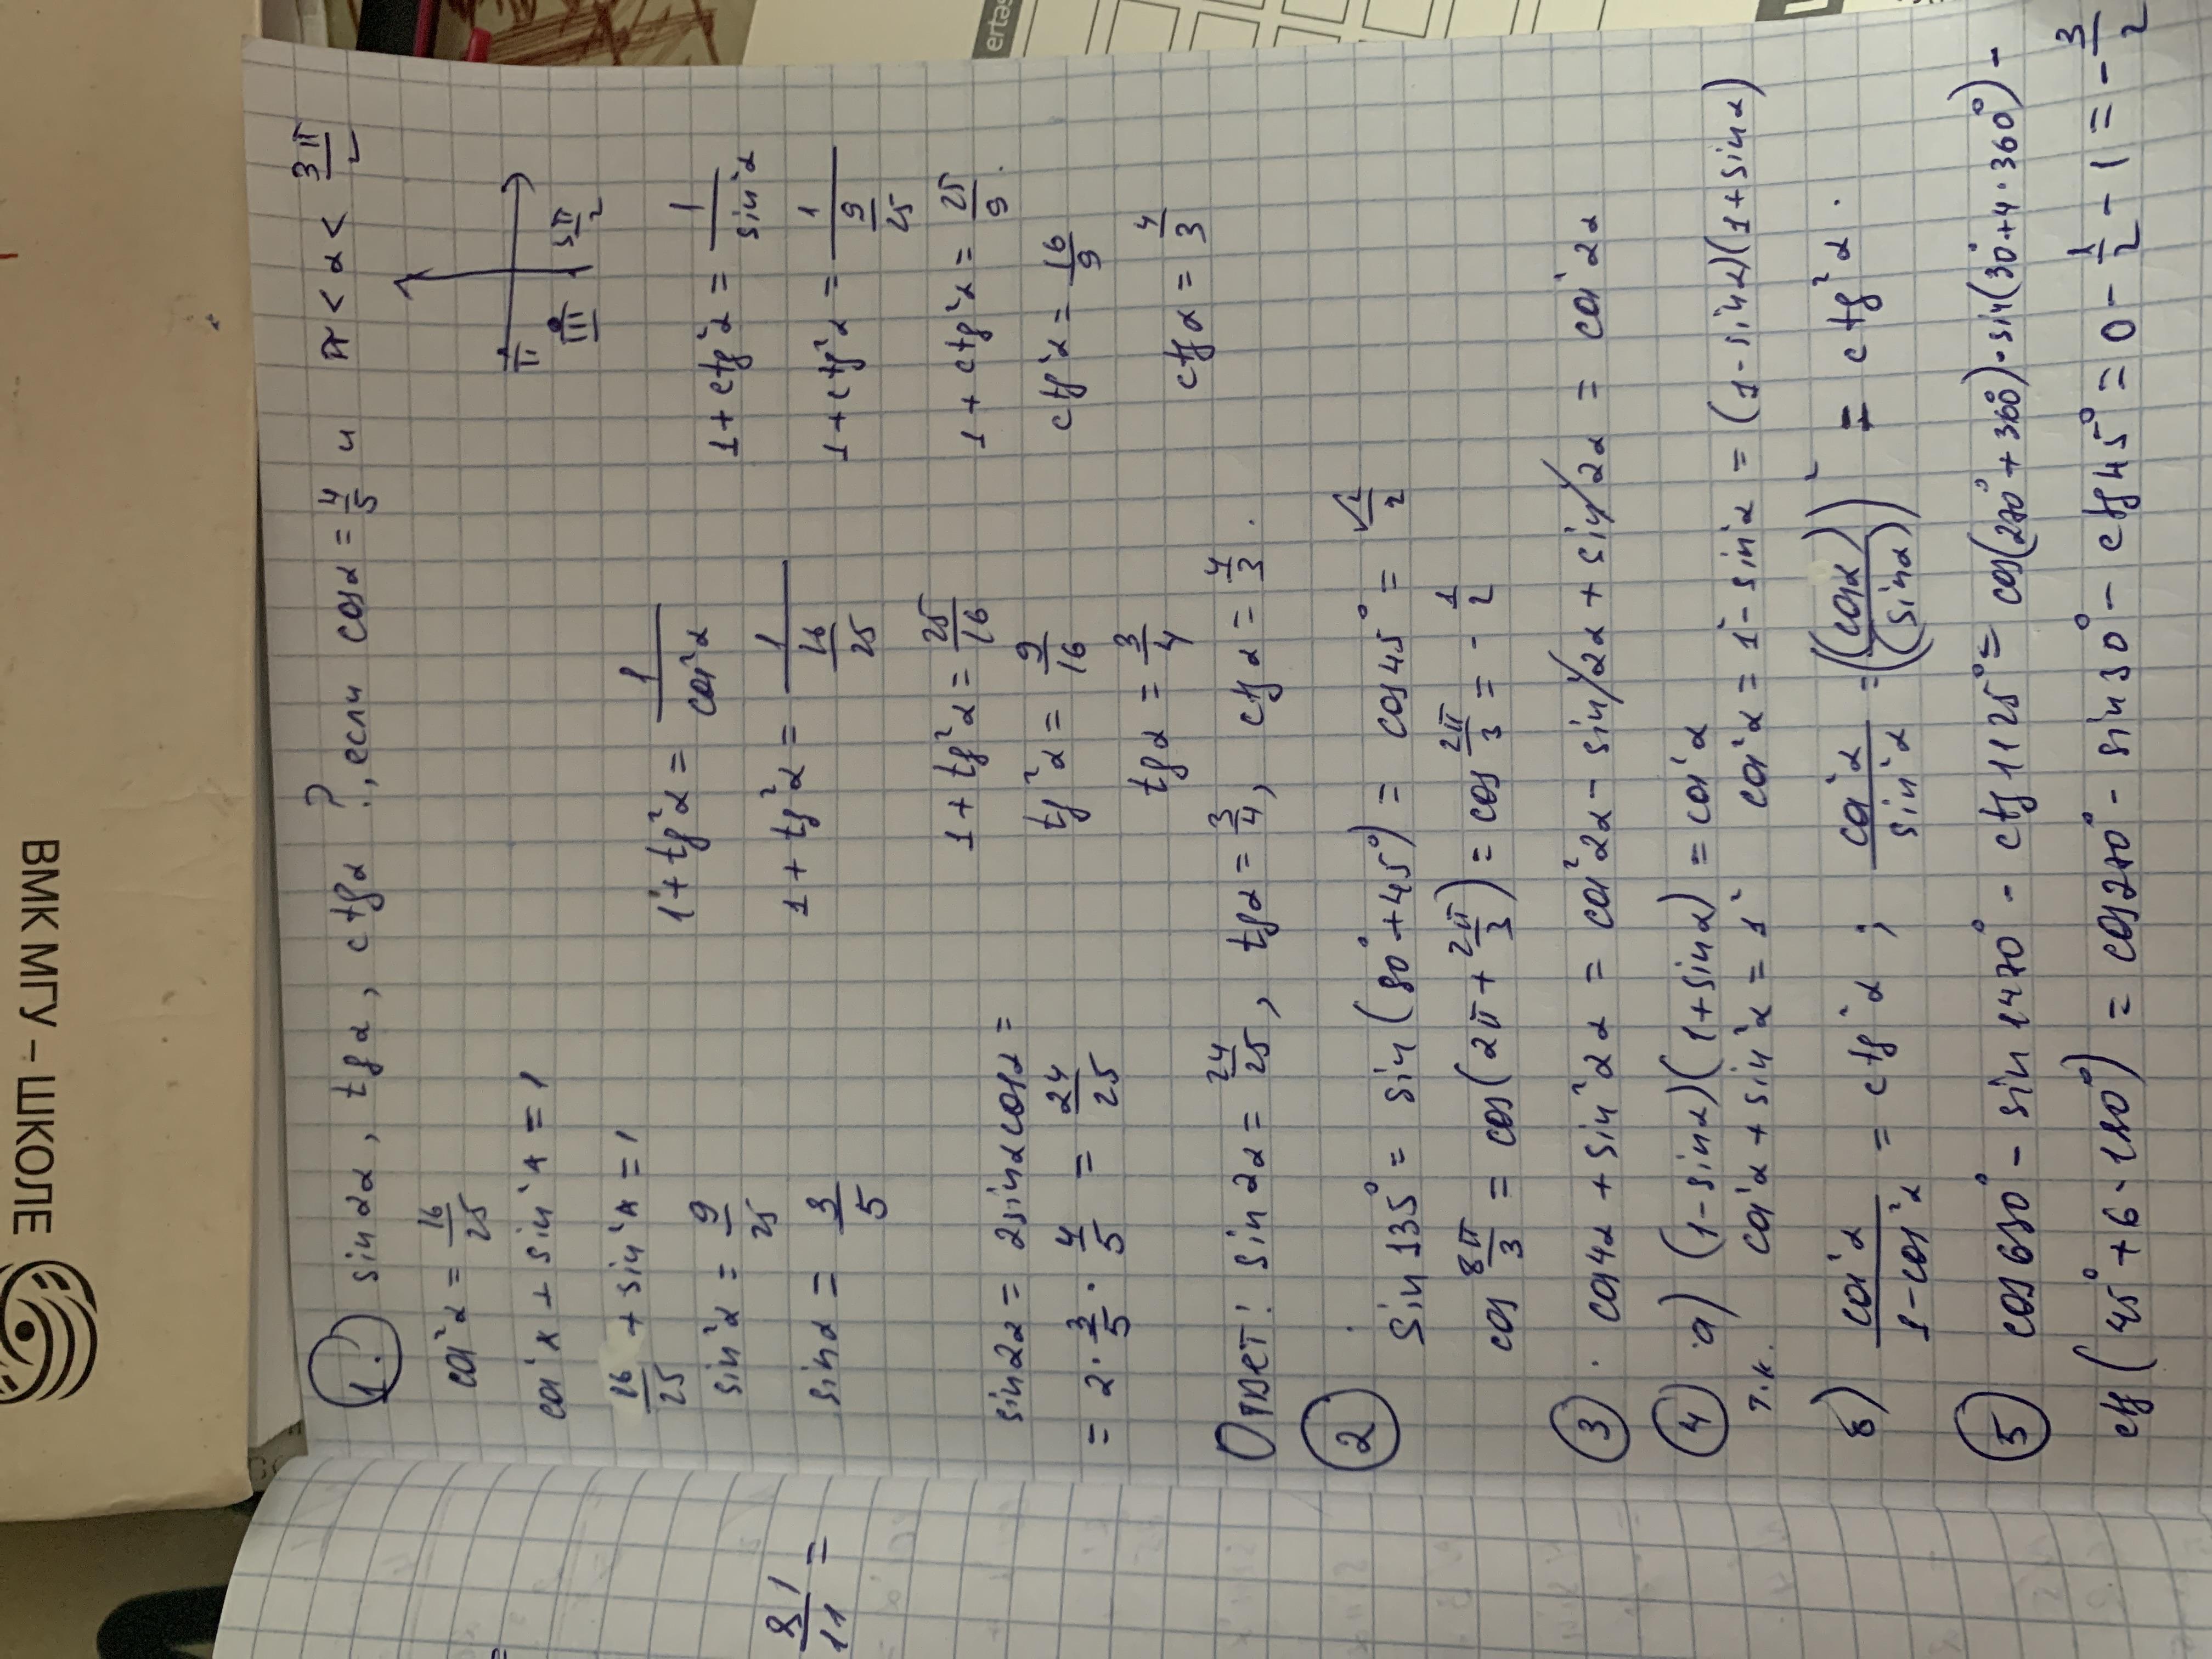 ВМК МГУ – ШКОЛЕ
ertas
81/11 =
1. sin2α, tgα, ctgα ?, если cosα = 4/5 и π < α < 3π/2
cos²α = 16/25
cos²x + sin²x = 1
16/25 + sin²x = 1
sin²α = 9/25
sinα = 3/5
sin2α = 2sinαcosα =
= 2 · 3/5 · 4/5 = 24/25
1 + tg²α = 1/cos²α
1 + tg²α = 1/(16/25)
1 + tg²α = 25/16
tg²α = 9/16
tgα = 3/4
π III 3π/2
1 + ctg²α = 1/sin²α
1 + ctg²α = 1/(9/25)
1 + ctg²α = 25/9.
ctg²α = 16/9
ctgα = 4/3
Ответ: sin2α = 24/25, tgα = 3/4, ctgα = 4/3.
2. sin135° = sin(90° + 45°) = cos45° = √2/2
cos 8π/3 = cos(2π + 2π/3) = cos 2π/3 = - 1/2
3. cos4α + sin²2α = cos²2α - sin²2α + sin²2α = cos²2α
4. а) (1 - sinα)(1 + sinα) = cos²α
т.к. cos²α + sin²α = 1² cos²α = 1² - sin²α = (1 - sinα)(1 + sinα)
б) cos²α/(1 - cos²α) = ctg²α ; cos²α/sin²α = ((cosα)/(sinα))² = ctg²α.
5. cos630° - sin1470° - ctg1125° = cos(270° + 360°) - sin(30° + 4·360°) -
ctg(45° + 6·180°) = cos270° - sin30° - ctg45° = 0 - 1/2 - 1 = - 3/2